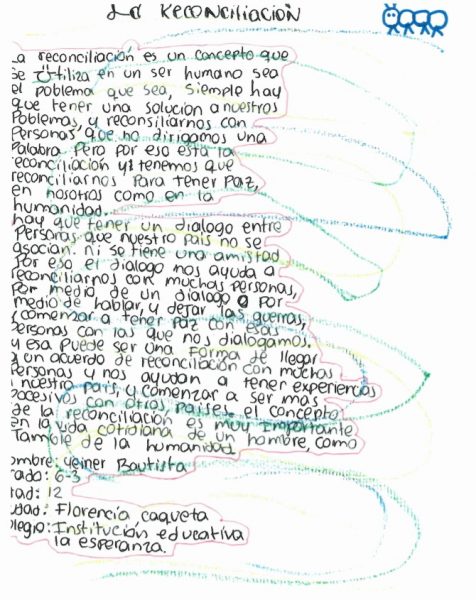 La Reconciliación
La reconciliación es un concepto que
se Utiliza en un ser humano sea
el poblema que sea, siemple hay
que tener una solución a nuestros
Poblemas, y reconsiliarnos con
Personas que no dirigamos una
Palabra pero por eso está la
reconciliación y tenemos que
reconciliarnos Para tener Paz,
en nosotros como en la
humanidad.
hay que tener un dialogo entre
Personas que nuestro país no se
asocian. ni se tiene una amistad
Por eso el dialogo nos ayuda a
reconciliarnos con muchas personas,
Por medio de un dialogo o Por
medio de hablar, y dejar las guerras,
y comenzar a tener Paz con esas
Personas con las que nos dialogamos.
y esa Puede ser una Forma de llegar
a un acuerdo de reconciliación con muchas
Personas y nos ayudan a tener experiencias
a nuestro país, y comenzar a ser mas
Pocesivos con otros países. el concepto
de la reconciliación es muy importante
en la vida cotidiana de un hombre, como
Tamble de la humanidad.
ombre: Yeiner Bautista
rado: 6-3
dad: 12
udad: Florencia caqueta
olegio: Institución educativa
la esperanza.